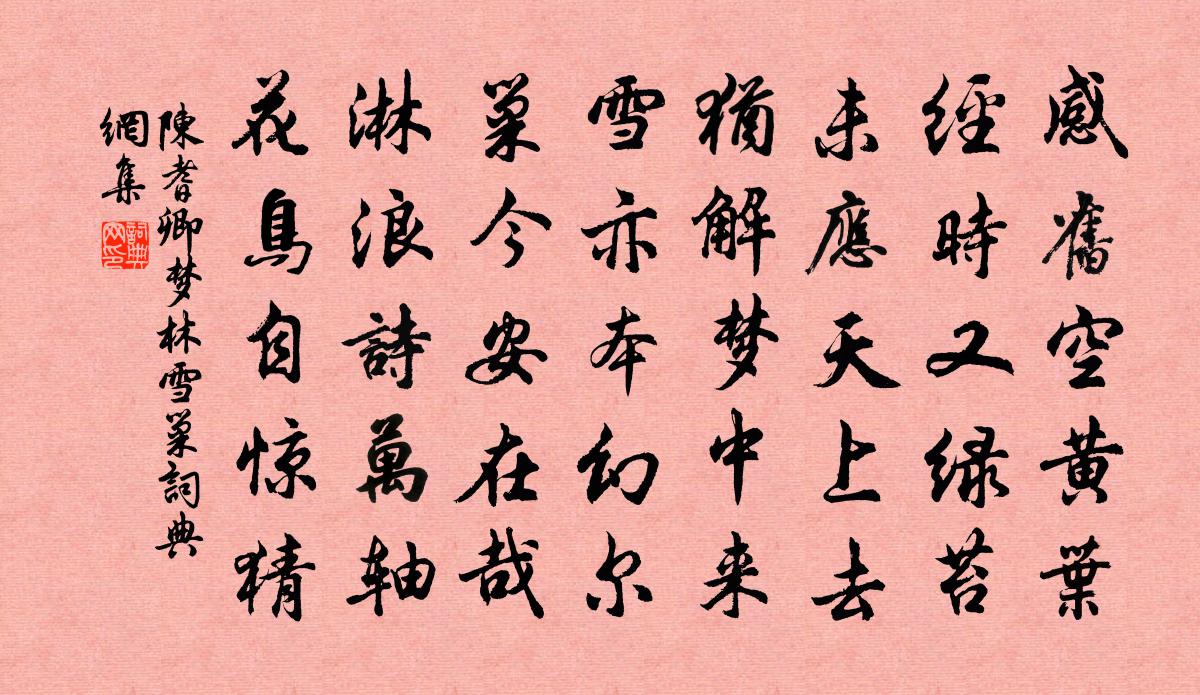 感舊空黄葉
經時又緑苔
未應天上去
猶解梦中来
雪亦本幻尔
巢今安在哉
淋浪詩萬轴
花鳥自惊猜
陳耆卿梦林雪巢詞典
網集
詞典网印